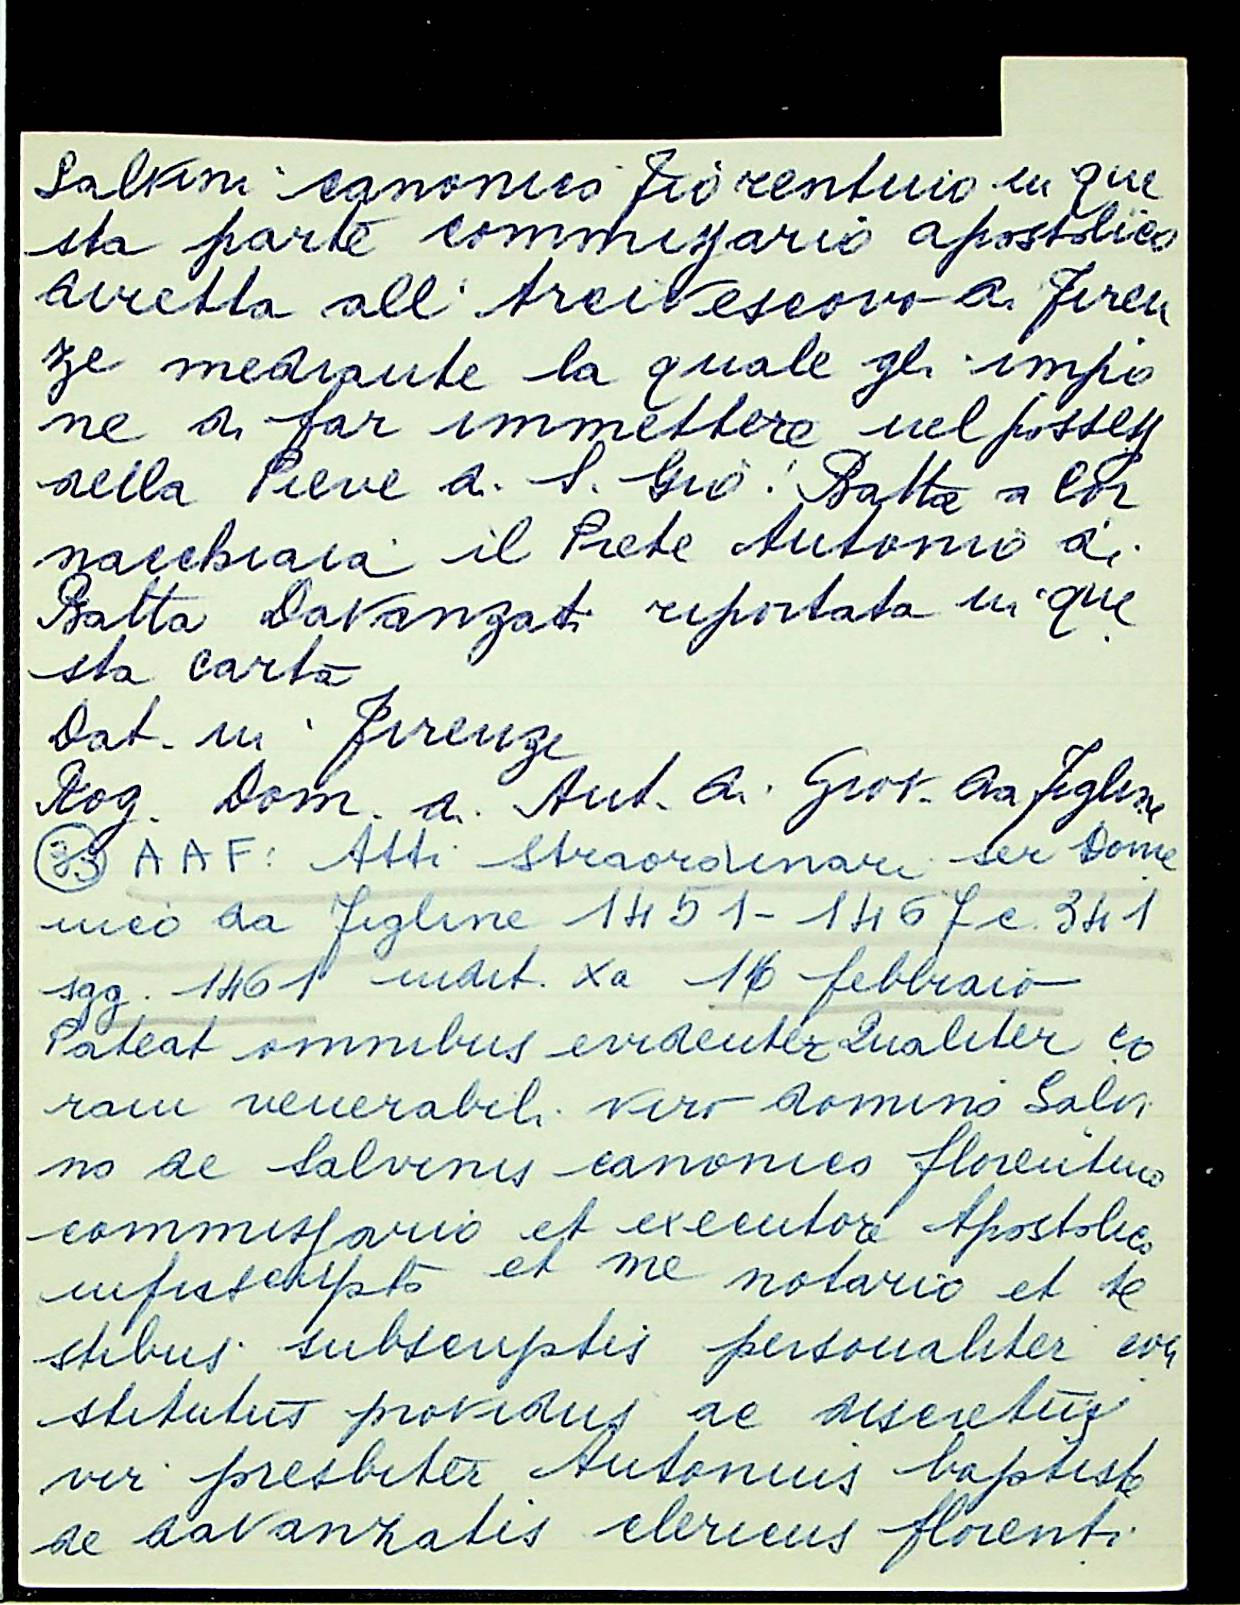 Salvini canonico Fiorentino in que
sta parte commissario apostolico
diretta all' Arcivescovo di Firen
ze mediante la quale gli impo
ne di far immettere nel possess
della Pieve di S. Gio: Batta a Cor
nacchiaia il Prete Antonio di
Batta Davanzati riportata in que
sta carta
Dat. in Firenze
Rog. Dom. di Ant. di Giov. da Figline
33 AAF: Atti Straordinari ser Dome
nico da Figline 1451-1467 c. 341
sgg. 1461 indit. Xa 16 febbraio
Pateat omnibus evidenter Qualiter co
ram venerabili viro domino Salvi
no de Salvinis canonico florentino
commissario et executore Apostolico
infrascripto et me notario et te
stibus subscriptis personaliter con
stitutus providus ac discretus
vir presbiter Antonius baptiste
de davanzatis clericus florenti